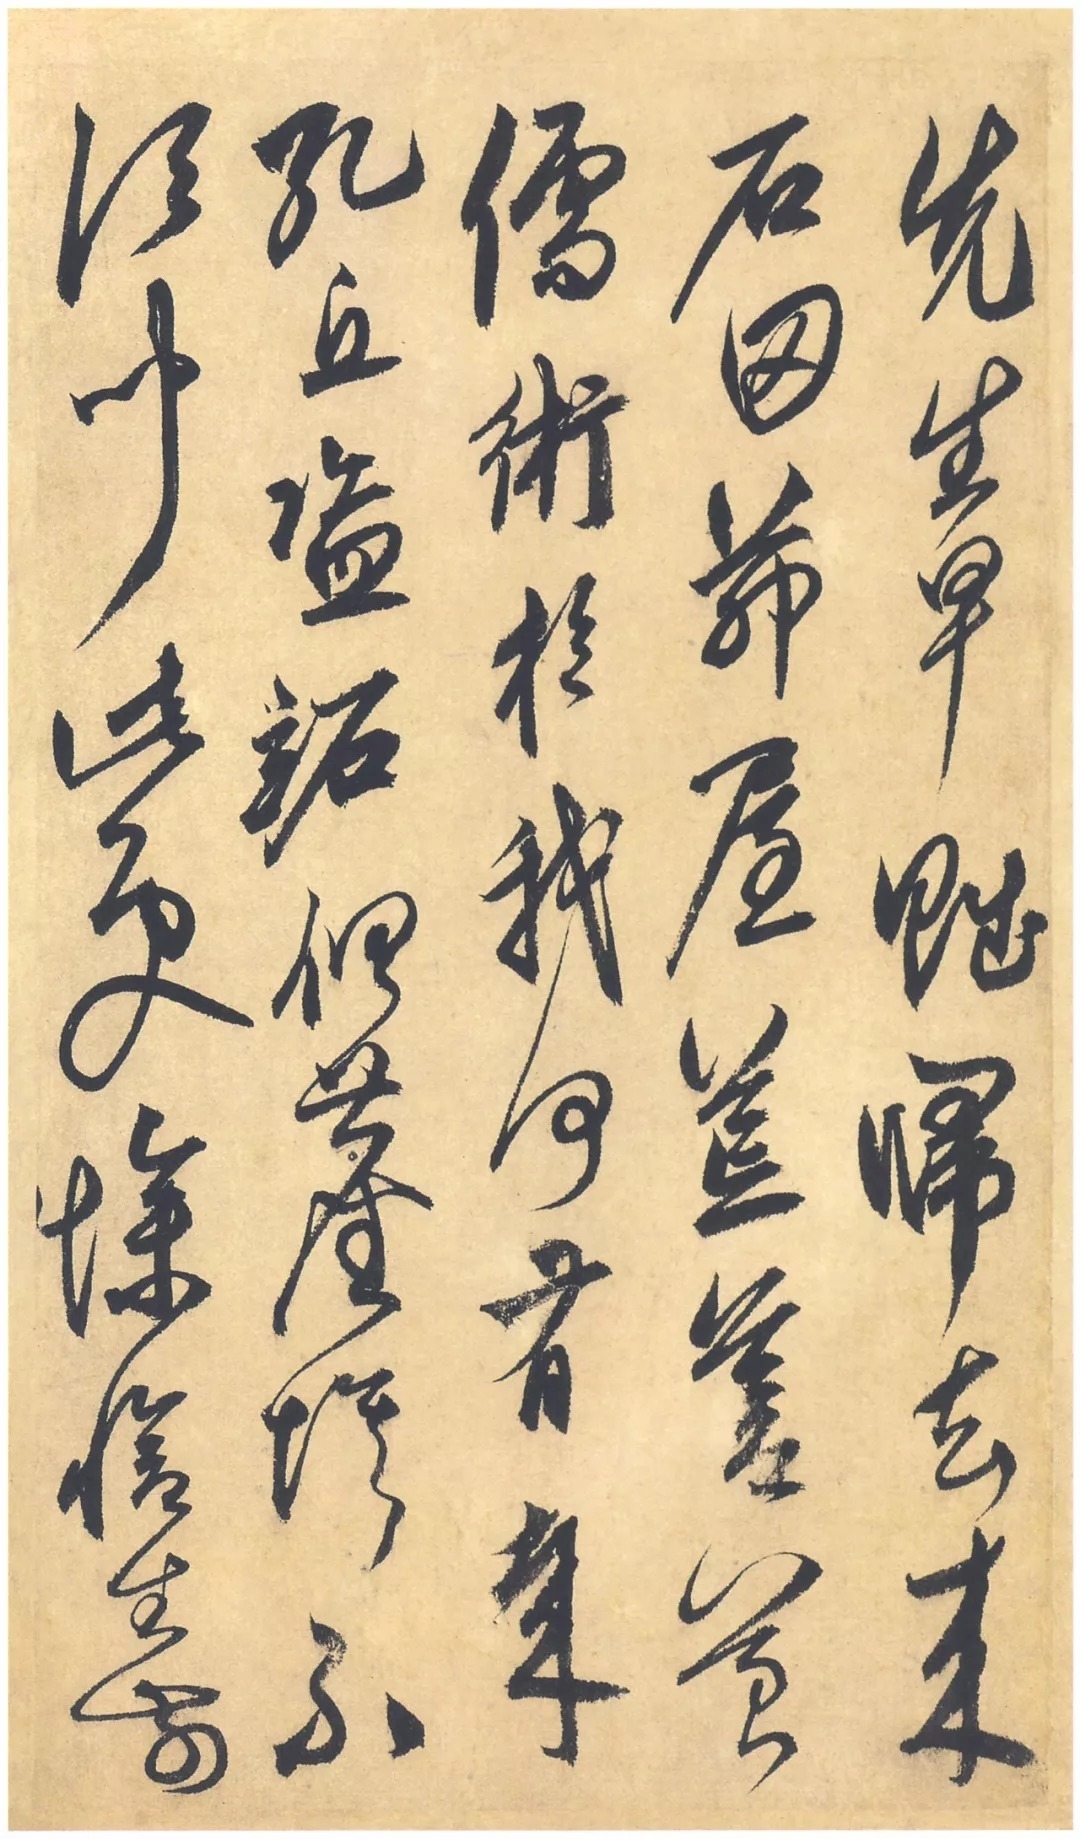 先生早賦歸去來
石田茅屋荒蒼苔
儒術於我何有哉
孔丘盜跖俱塵埃不
須聞此意慘愴生前